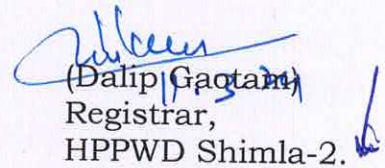 (Dalip Gaotam)
Registrar,
HPPWD Shimla-2.